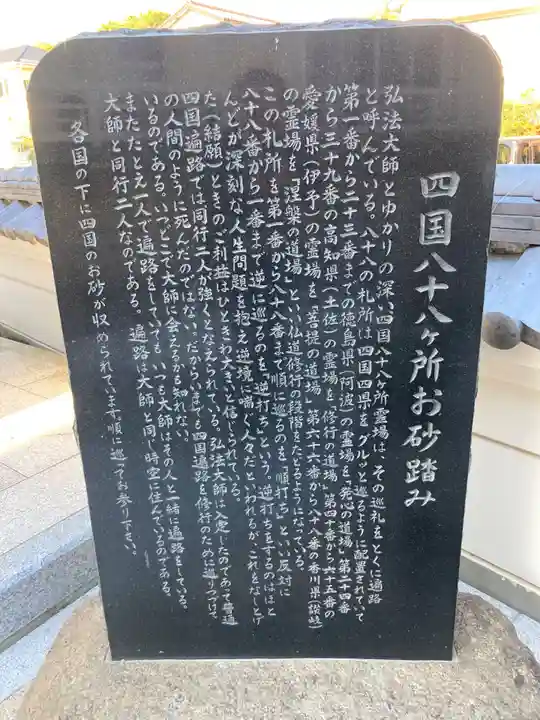 四国八十八ヶ所お砂踏み
弘法大師とゆかりの深い四国八十八ヶ所霊場は、その巡礼をとくに遍路
と呼んでいる。八十八の札所は四国四県をグルッと巡るように配置されていて
第一番から二十三番までの徳島県(阿波)の霊場を「発心の道場」第二十四番
から三十九番の高知県(土佐)の霊場を「修行の道場」第四十番から六十五番の
愛媛県(伊予)の霊場を「菩提の道場」第六十六番から八十八番の香川県(讃岐)
の霊場を「涅槃の道場」といい仏道修行の段階をたどるようになっている。
この札所を第一番から八十八番まで順に巡るのを「順打ち」といい反対に
八十八番から一番まで逆に巡るのを「逆打ち」という。逆打ちをするのはほと
んどが深刻な人生問題を抱え逆境に喘ぐ人々だといわれるが、これをなしとげ
た(結願)ときのご利益はひときわ大きいと信じられている。
四国遍路では同行二人が強くとなえられている。弘法大師は入定したのであって普通
の人間のように死んだのではない。だからいまでも四国遍路を修行のために巡りつづけて
いるのである。いつどこで大師に会えるかも知れない。
またたとえ一人で遍路をしていても、いつも大師はその人と一緒に遍路をしている。
大師と同行二人なのである。 遍路は大師と同じ時空に住んでいるのである。
各国の下に四国のお砂が収められています。順に巡ってお参り下さい。